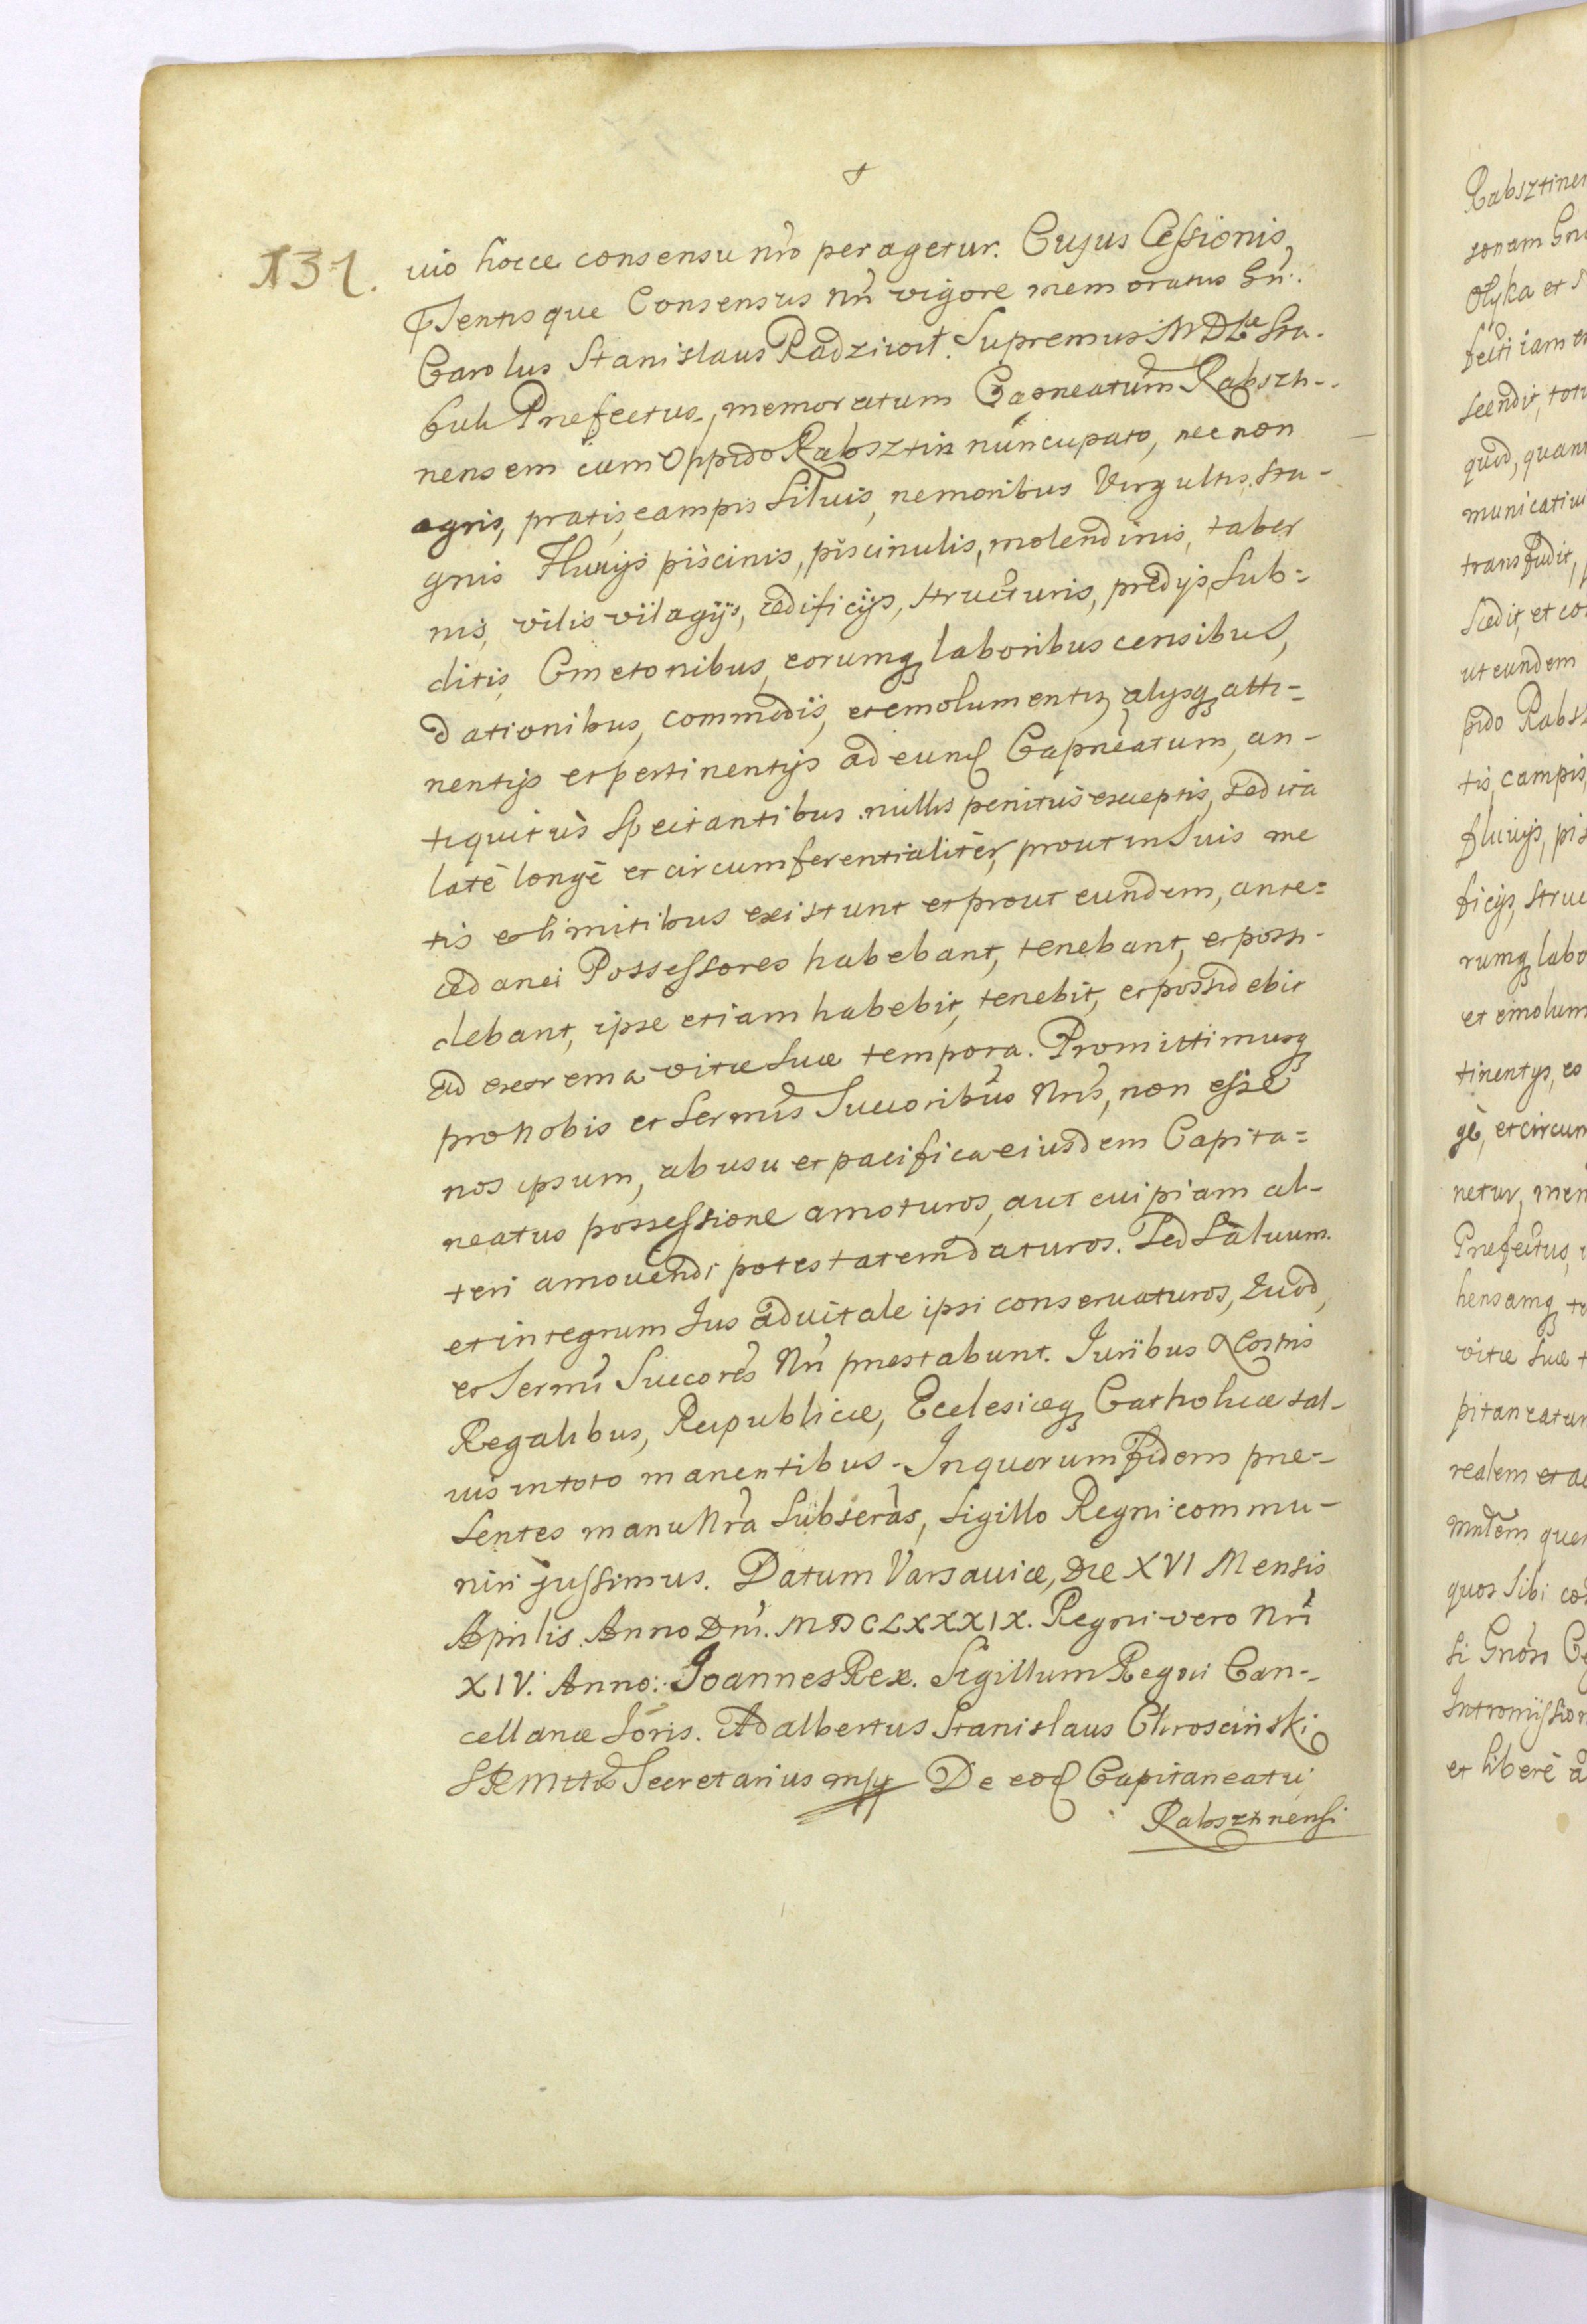 131.
uio hocce consensu nr̃o peragetur. Cujus Cessionis,
Pñtisque Consensus nr̃i vigore memoratus Gñ.
Carolus Stanislaus Radziwił. Supremus M D L Sta-
buli Præfectus, memoratum Capneatum Rabszti-
nensem cum Oppido Rabsztin nuncupato, nec non
agris, pratis, campis Siluis, nemoribus Virgultis. Sta-
gnis Fluuijs piscinis, piscinulis, molendinis, taber
nis, vilis vilagijs, ædificijs, structuris, prædijs, Sub=
ditis, Cmetonibus, eorumq laboribus censibus,
dationibus, commodis, et emolumentis, alijsq atti=
nentijs et pertinentijs ad eund Capneatum, an-
tiquitùs Spectantibus nullis penitùs exceptis, sed ita
latè longè et circumferentialitèr, prout in Suis me
tis et limitibus existunt et prout eundem, ante=
cedanei Possessores habebant, tenebant, et possi-
debant, ipse etiam habebit, tenebit, et possidebit
ad extrema vitæ Suæ tempora. Promittimusq
pro Nobis et Sermis Succoribus Nris, non esse
nos ipsum, ab usu et pacifica eiusdem Capita=
neatus possessione amoturos, aut cuipiam al-
teri amouendi potestatem daturos. Sed Saluum
et integrum Jus aduitale ipsi conseruaturos, Quod,
et Sermi Succores Nri præstabunt. Juribus
Regalibus, Reipublicæ, Ecclesiæq Catholicæ sal-
uis in toto manentibus. In quorum fidem præ-
sentes manu Nra Subscras, Sigillo Regni commu-
niri jussimus. Datum Varsauiæ, Die XVI Mensis
Aprilis. Anno Dni. MDCLXXXIX. Regni vero Nri
XIV. Anno: Joannes Rex. Sigillum Regni Can-
cellariæ Joris. Adalbertus Stanislaus Chrosciński
SRMttis Secretarius mpp De eod Capitaneatu
Rabsztinensi
Rabsztinen
Olyka et
fecti iam
scendit, totu
quod, quan
municatiu
transfudit,
scedit, et co
ut eundem
pido Rabs
tis, campis,
fluuijs, pis
ficijs, struc
rumq labo
et emolum
tinentijs, eo
gè, et circum
netur, mem
Præfectus,
hensamq te
vitæ Suæ t
pitaneatum
realem et ac
quos Sibi
Intromission
et liberè a